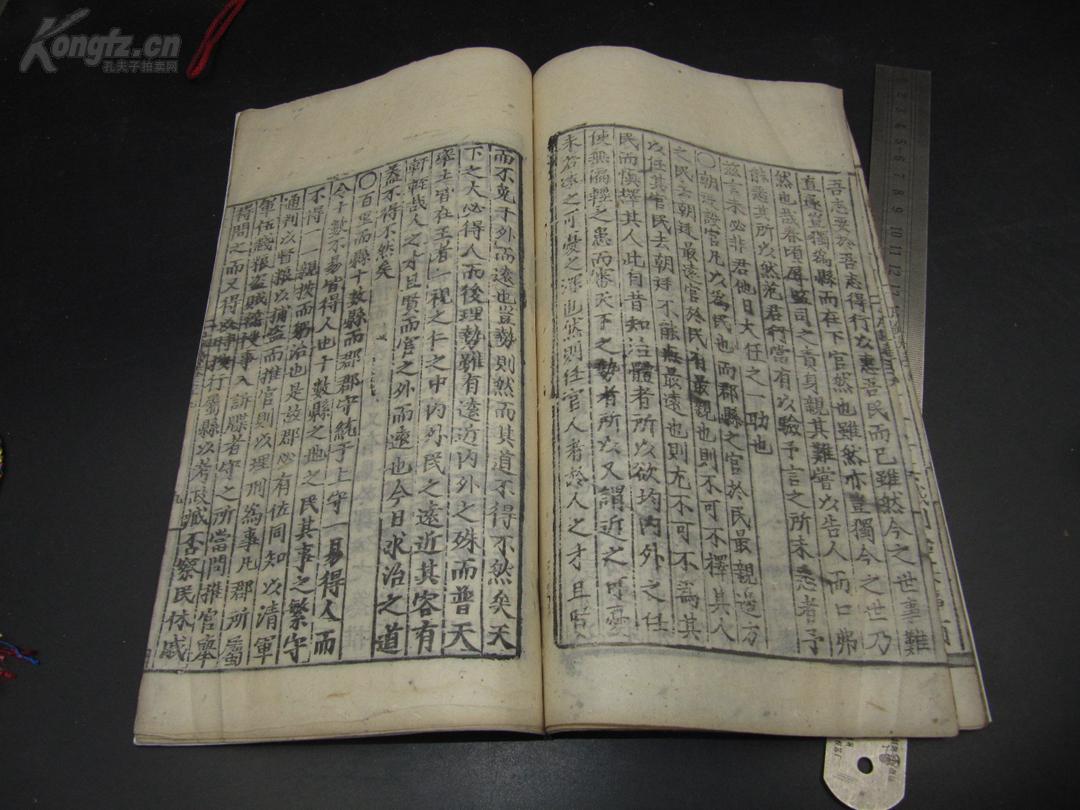 Kongfz.cn
孔夫子拍卖网
吾志要於吾志得行以惠吾民而已雖然今之世事難
直遂豈獨爲縣而在下官然也雖然亦豈獨今之世乃
然也哉春頃厚監司之責身親其難嘗以告人而口弗
能悉其所以然范君行當有以驗予言之所未悉者予
茲言未必非君他日大任之一助也
○朝廷設官凡以爲民也而郡縣之官於民最親遠方
之民去朝廷最遠官於民有最親也則不可不擇其人
以任其官民去朝廷不能無最遠也則尤不可不爲其
民而愼擇其人此自昔知治體者所以欲均內外之任
使無偏輕之患而審天下之勢者所以又謂近之可憂
未若遠之可憂之深也然則任官人者於人之才且賢
而不克于外而遠也豈勢則然而其道不得不然矣天
下之大必得人而後理勢雖有遠近內外之殊而普天
率土皆在王者一視之仁之中內外民之遠近其容有
軒輊哉人之才且賢而官之外而遠也今日求治之道
蓋不得不然矣
○百里而縣十數縣而郡郡守統于上守一易得人而
令十數不易皆得人也十數縣之地之民其事之繁守
不得一一親接而躬治也是故郡必有佐同知以清軍
通判以督糧以捕盜而推官則以理刑爲事凡郡所屬
軍伍錢糧盜賊
事入訴牒者守之所當問推官率
得問之而又得以時行屬縣以考政臧否察民休戚